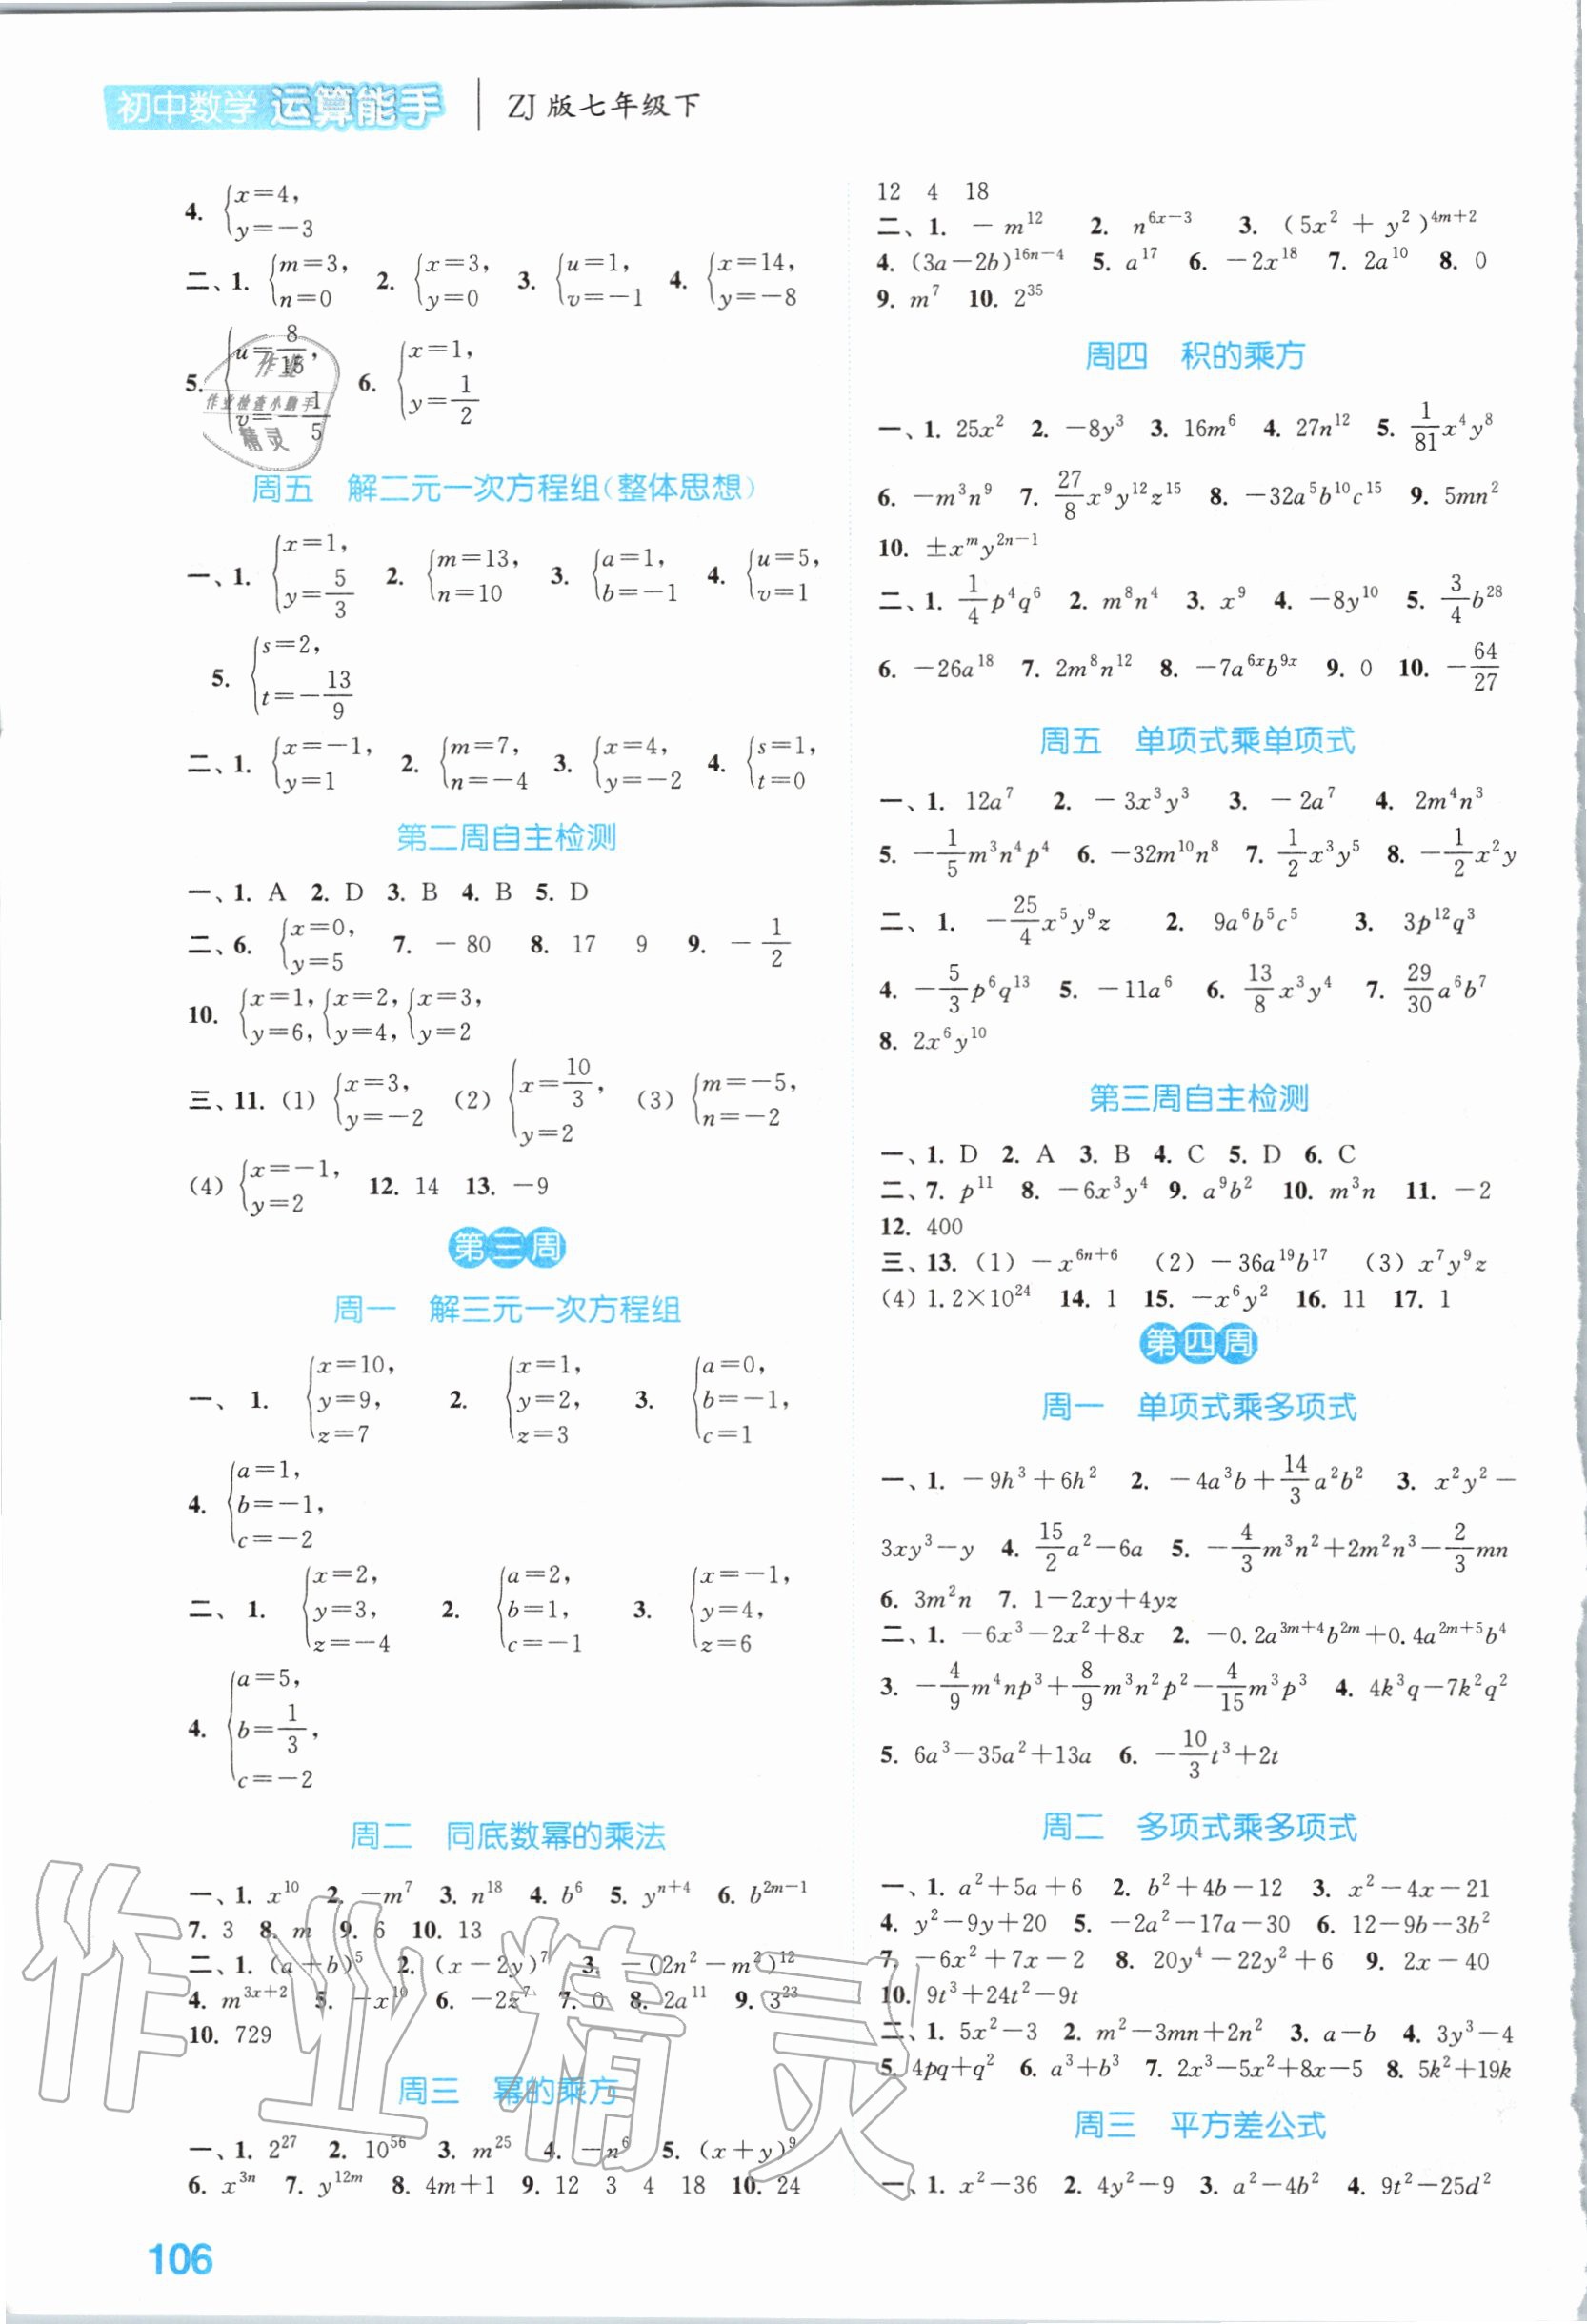 初中数学 运算能手 | ZJ版七年级下
4. {x=4, y=-3
二、1. {m=3, n=0 2. {x=3, y=0 3. {u=1, v=-1 4. {x=14, y=-8
5. {u=8/15, v=-1/5 6. {x=1, y=1/2
作业
作业检查小助手
精灵
周五 解二元一次方程组(整体思想)
一、1. {x=1, y=5/3 2. {m=13, n=10 3. {a=1, b=-1 4. {u=5, v=1
5. {s=2, t=-13/9
二、1. {x=-1, y=1 2. {m=7, n=-4 3. {x=4, y=-2 4. {s=1, t=0
第二周自主检测
一、1. A 2. D 3. B 4. B 5. D
二、6. {x=0, y=5 7. -80 8. 17 9 9. -1/2
10. {x=1, y=6, {x=2, y=4, {x=3, y=2
三、11. (1) {x=3, y=-2 (2) {x=10/3, y=2 (3) {m=-5, n=-2
(4) {x=-1, y=2 12. 14 13. -9
第三周
周一 解三元一次方程组
一、1. {x=10, y=9, z=7 2. {x=1, y=2, z=3 3. {a=0, b=-1, c=1
4. {a=1, b=-1, c=-2
二、1. {x=2, y=3, z=-4 2. {a=2, b=1, c=-1 3. {x=-1, y=4, z=6
4. {a=5, b=1/3, c=-2
周二 同底数幂的乘法
一、1. x^10 2. -m^7 3. n^18 4. b^6 5. y^(n+4) 6. b^(2m-1)
7. 3 8. m 9. 6 10. 13
二、1. (a+b)^5 2. (x-2y)^7 3. -(2n^2-m^2)^12
4. m^(3x+2) 5. -x^10 6. -2z^7 7. 0 8. 2a^11 9. 3^23
10. 729
周三 幂的乘方
一、1. 2^27 2. 10^56 3. m^25 4. -n^6 5. (x+y)^9
6. x^(3n) 7. y^(12m) 8. 4m+1 9. 12 3 4 18 10. 24
106
12 4 18
二、1. -m^12 2. n^(6x-3) 3. (5x^2+y^2)^(4m+2)
4. (3a-2b)^(16n-4) 5. a^17 6. -2x^18 7. 2a^10 8. 0
9. m^7 10. 2^35
周四 积的乘方
一、1. 25x^2 2. -8y^3 3. 16m^6 4. 27n^12 5. 1/81 x^4y^8
6. -m^3n^9 7. 27/8 x^9y^12z^15 8. -32a^5b^10c^15 9. 5mn^2
10. ±x^m y^(2n-1)
二、1. 1/4 p^4q^6 2. m^8n^4 3. x^9 4. -8y^10 5. 3/4 b^28
6. -26a^18 7. 2m^8n^12 8. -7a^(6x)b^(9x) 9. 0 10. -64/27
周五 单项式乘单项式
一、1. 12a^7 2. -3x^3y^3 3. -2a^7 4. 2m^4n^3
5. -1/5 m^3n^4p^4 6. -32m^10n^8 7. 1/2 x^3y^5 8. -1/2 x^2y
二、1. -25/4 x^5y^9z 2. 9a^6b^5c^5 3. 3p^12q^3
4. -5/3 p^6q^13 5. -11a^6 6. 13/8 x^3y^4 7. 29/30 a^6b^7
8. 2x^6y^10
第三周自主检测
一、1. D 2. A 3. B 4. C 5. D 6. C
二、7. p^11 8. -6x^3y^4 9. a^9b^2 10. m^3n 11. -2
12. 400
三、13. (1) -x^(6n+6) (2) -36a^19b^17 (3) x^7y^9z
(4) 1.2×10^24 14. 1 15. -x^6y^2 16. 11 17. 1
第四周
周一 单项式乘多项式
一、1. -9h^3+6h^2 2. -4a^3b+14/3 a^2b^2 3. x^2y^2-
3xy^3-y 4. 15/2 a^2-6a 5. -4/3 m^3n^2+2m^2n^3-2/3 mn
6. 3m^2n 7. 1-2xy+4yz
二、1. -6x^3-2x^2+8x 2. -0.2a^(3m+4)b^(2m)+0.4a^(2m+5)b^4
3. -4/9 m^4np^3+8/9 m^3n^2p^2-4/15 m^3p^3 4. 4k^3q-7k^2q^2
5. 6a^3-35a^2+13a 6. -10/3 t^3+2t
周二 多项式乘多项式
一、1. a^2+5a+6 2. b^2+4b-12 3. x^2-4x-21
4. y^2-9y+20 5. -2a^2-17a-30 6. 12-9b-3b^2
7. -6x^2+7x-2 8. 20y^4-22y^2+6 9. 2x-40
10. 9t^3+24t^2-9t
二、1. 5x^2-3 2. m^2-3mn+2n^2 3. a-b 4. 3y^3-4
5. 4pq+q^2 6. a^3+b^3 7. 2x^3-5x^2+8x-5 8. 5k^2+19k
周三 平方差公式
一、1. x^2-36 2. 4y^2-9 3. a^2-4b^2 4. 9t^2-25d^2
作业精灵